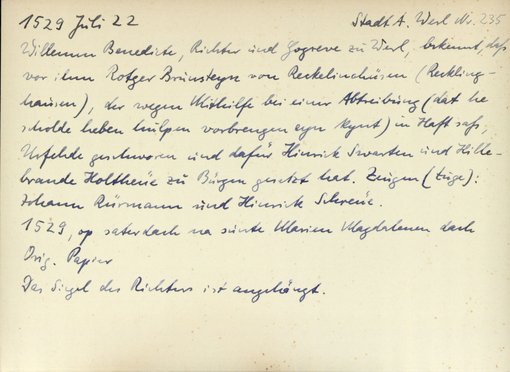 1529 Juli 22 Stadt A. Werl Nr. 235
Willemm Benedicte, Richter und Gogreve zu Werl, bekennt, daß
vor ihm Rotger Brunsteyn von Reckelinchusen (Reckling-
hausen), der wegen Mithilfe bei einer Abtreibung (dat he
scholde heben hulpen vorbrengen eyn kynt) in Haft saß,
Urfehde geschworen und dafür Hinrick Swarten und Hille-
brande Holtheue zu Bürgen gesetzt hat. Zeugen (tuge):
Johann Rürmann und Hinrick Schreue.
1529, op saterdach na sunte Marien Magdalenen dach
Orig. Papier
Das Siegel des Richters ist angehängt.